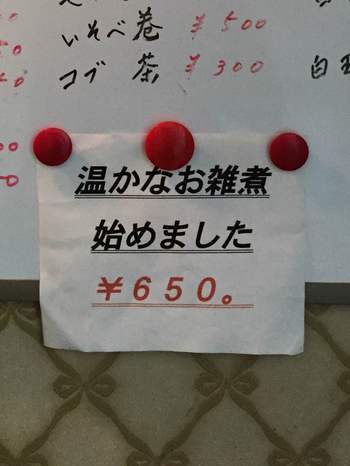 いそべ巻 ¥500
コブ茶 ¥300
白玉
温かなお雑煮
始めました
¥650。